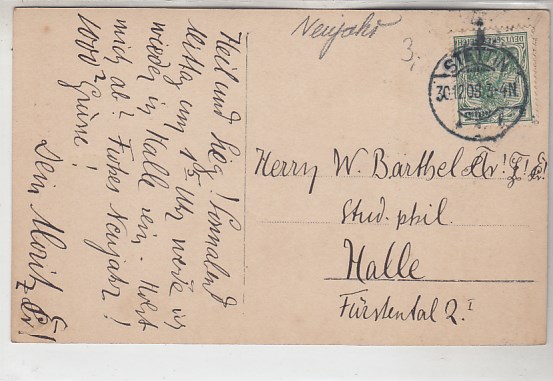 Neujahr
3,
DEUTSCHES REICH
STETTIN
30.12.08.3-4N
Heil und Sieg! Sonnabend
Mittag um 1 Uhr werde ich
wieder in Halle sein. Holst
mich ab? Frohes Neujahr!
1000 Grüße!
Dein Moritz
Herrn W. Barthel
Stud. phil.
Halle
Fürstental 2. I